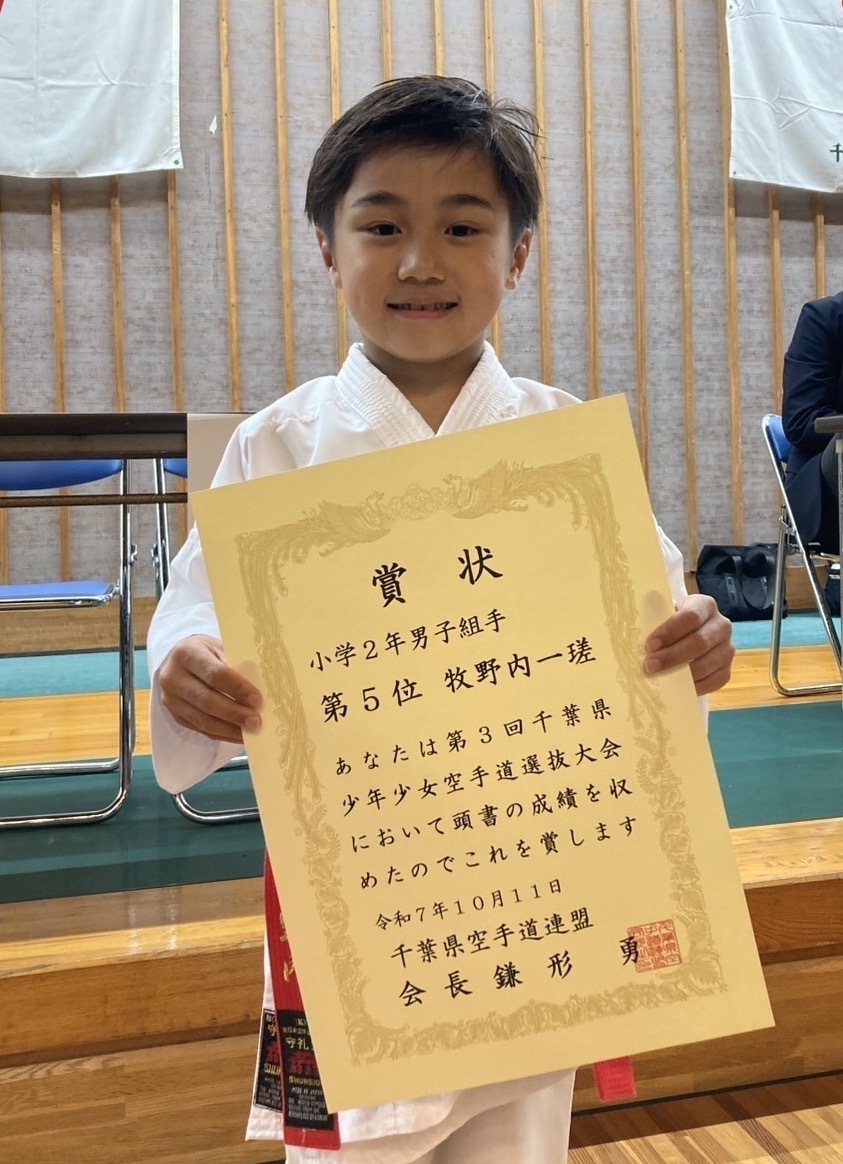 賞 状
小学2年男子組手
第5位 牧野内一瑳
あなたは第3回千葉県
少年少女空手道選抜大会
において頭書の成績を収
めたのでこれを賞します
令和7年10月11日
千葉県空手道連盟
会長鎌形 勇
千
守礼
SHUREIDO